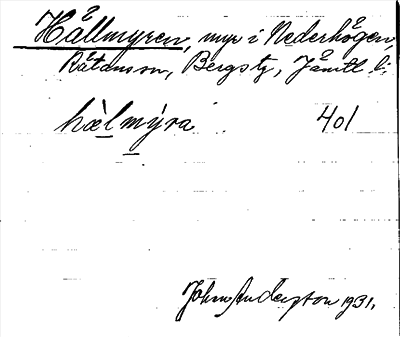 Hållmyren, myr i Nederhögen,
Rätanson, Bergs tg, Jämtl l:
hælmýra 401
John Anderzton 1931.